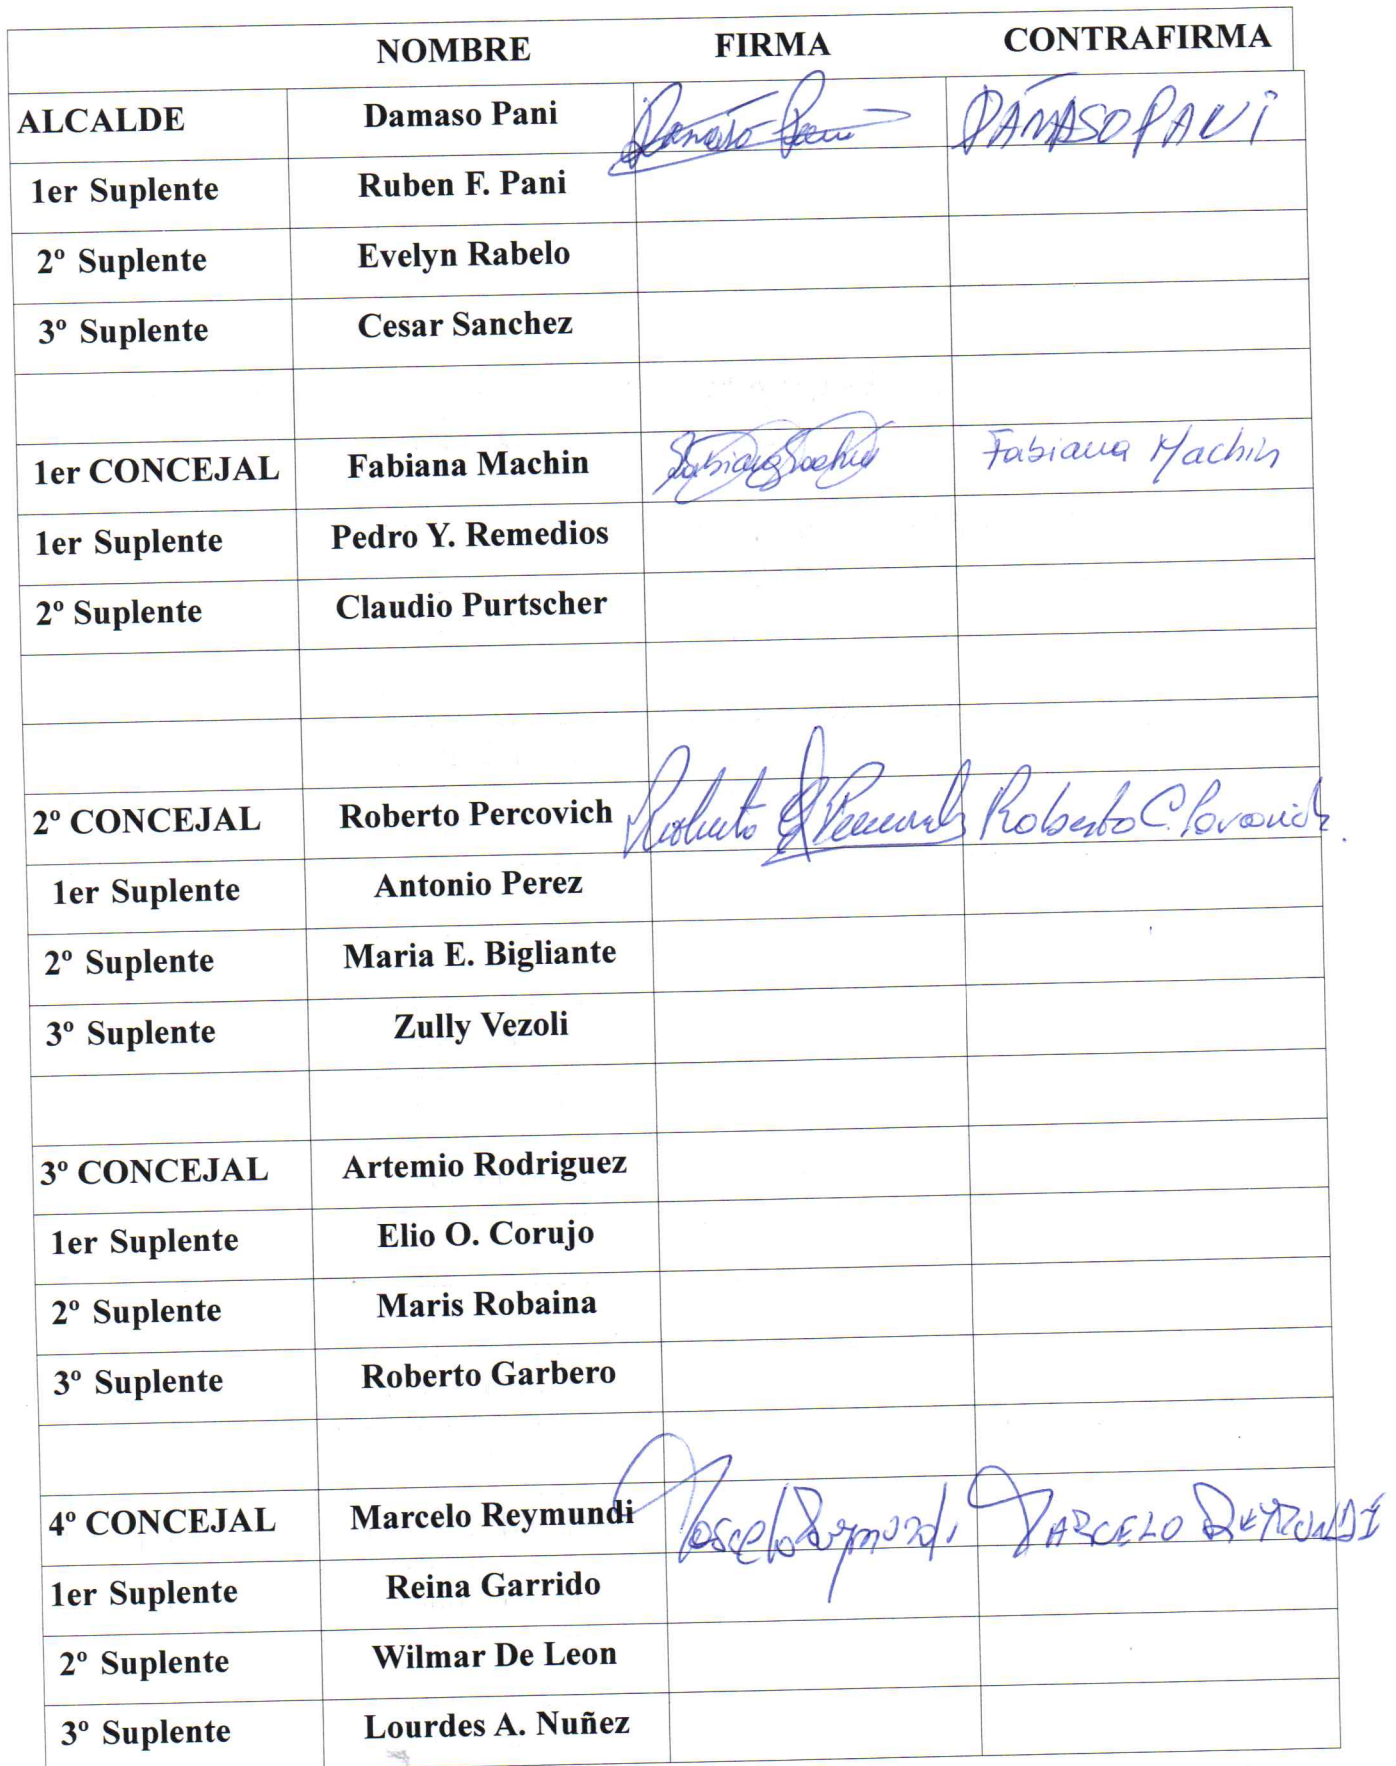 NOMBRE FIRMA CONTRAFIRMA
ALCALDE Damaso Pani Damaso Pani DAMASO PANI
1er Suplente Ruben F. Pani
2º Suplente Evelyn Rabelo
3º Suplente Cesar Sanchez
1er CONCEJAL Fabiana Machin Fabiana Machin Fabiana Machin
1er Suplente Pedro Y. Remedios
2º Suplente Claudio Purtscher
2º CONCEJAL Roberto Percovich Roberto Roberto C. Percovich
1er Suplente Antonio Perez
2º Suplente Maria E. Bigliante
3º Suplente Zully Vezoli
3º CONCEJAL Artemio Rodriguez
1er Suplente Elio O. Corujo
2º Suplente Maris Robaina
3º Suplente Roberto Garbero
4º CONCEJAL Marcelo Reymundi Marcelo Reymundi MARCELO REYMUNDI
1er Suplente Reina Garrido
2º Suplente Wilmar De Leon
3º Suplente Lourdes A. Nuñez